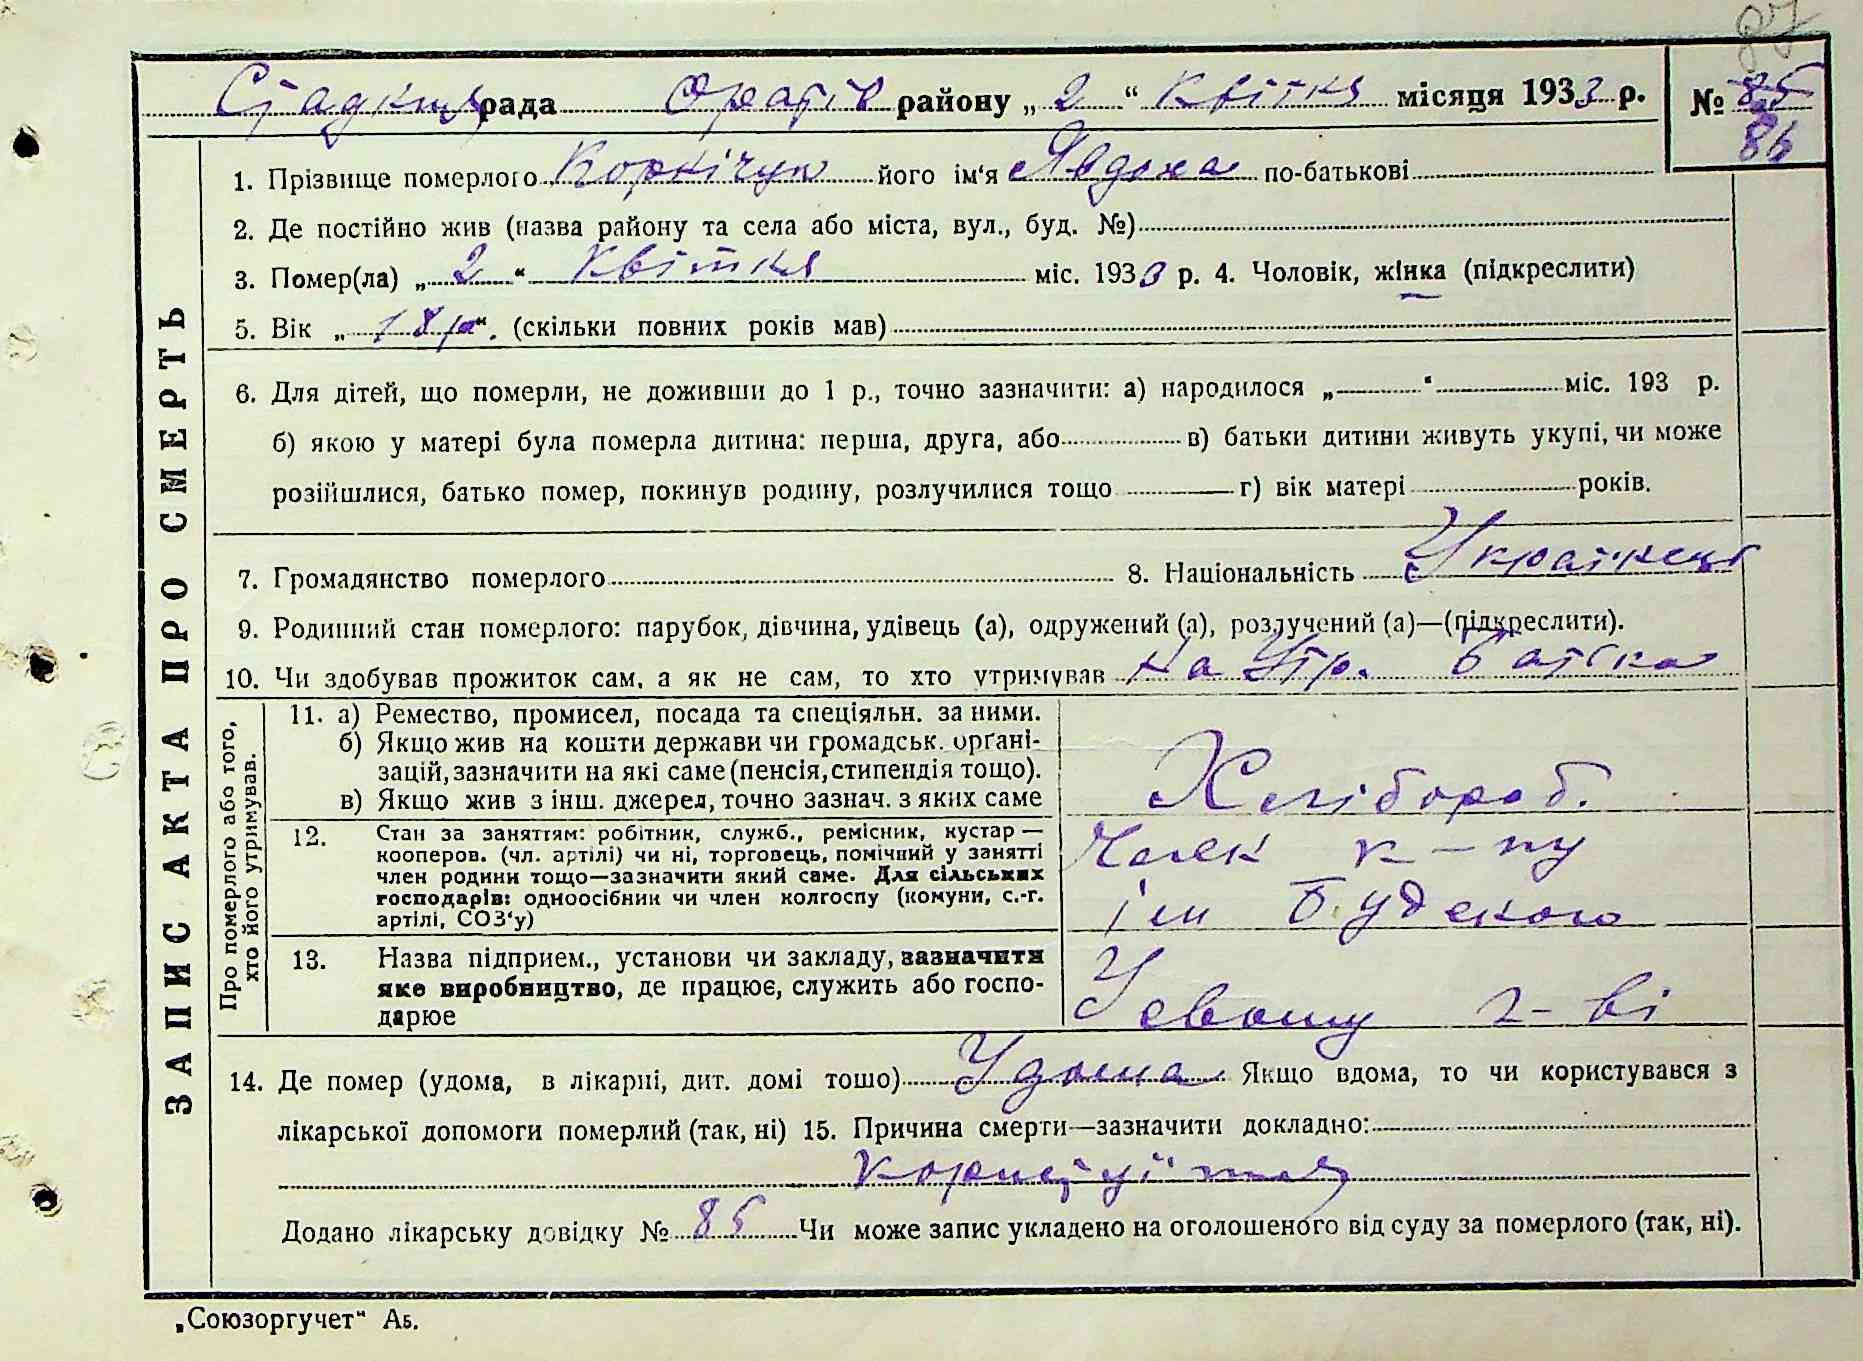 87
Стадниця рада Оратів району „ 2 “ Квітня місяця 1933 р. № 85
86
1. Прізвище померлого Корнічук його ім'я Явдоха по-батькові
2. Де постійно жив (назва району та села або міста, вул., буд. №)
3. Помер(ла) „ 2 “ Квітня міс. 1933 р. 4. Чоловік, жінка (підкреслити)
5. Вік „ 18 р “. (скільки повних років мав)
6. Для дітей, що померли, не доживши до 1 р., точно зазначити: а) народилося „ “ міс. 193 р.
б) якою у матері була померла дитина: перша, друга, або в) батьки дитини живуть укупі, чи може
розійшлися, батько помер, покинув родину, розлучилися тощо г) вік матері років.
7. Громадянство померлого 8. Національність Українець
9. Родинний стан померлого: парубок, дівчина, удівець (а), одружений (а), розлучений (а)—(підкреслити).
10. Чи здобував прожиток сам, а як не сам, то хто утримував На Утр. батька
Про померлого або того, хто його утримував.
11. а) Ремество, промисел, посада та спеціяльн. за ними.
б) Якщо жив на кошти держави чи громадськ. органі-
зацій, зазначити на які саме (пенсія, стипендія тощо).
в) Якщо жив з інш. джерел, точно зазнач. з яких саме
Хлібороб.
12. Стан за заняттям: робітник, служб., ремісник, кустар —
кооперов. (чл. артілі) чи ні, торговець, помічний у занятті
член родини тощо—зазначити який саме. Для сільських
господарів: одноосібник чи член колгоспу (комуни, с.-г.
артілі, СОЗ'у)
Член к-пу
ім Будьоного
13. Назва підприєм., установи чи закладу, зазначити
яке виробництво, де працює, служить або госпо-
дарює
У свому г-ві
14. Де помер (удома, в лікарні, дит. домі тощо) Удома Якщо вдома, то чи користувався з
лікарської допомоги померлий (так, ні) 15. Причина смерти—зазначити докладно:
Додано лікарську довідку № 85 Чи може запис укладено на оголошеного від суду за померлого (так, ні).
ЗАПИС АКТА ПРО СМЕРТЬ
„Союзоргучет“ Аб.